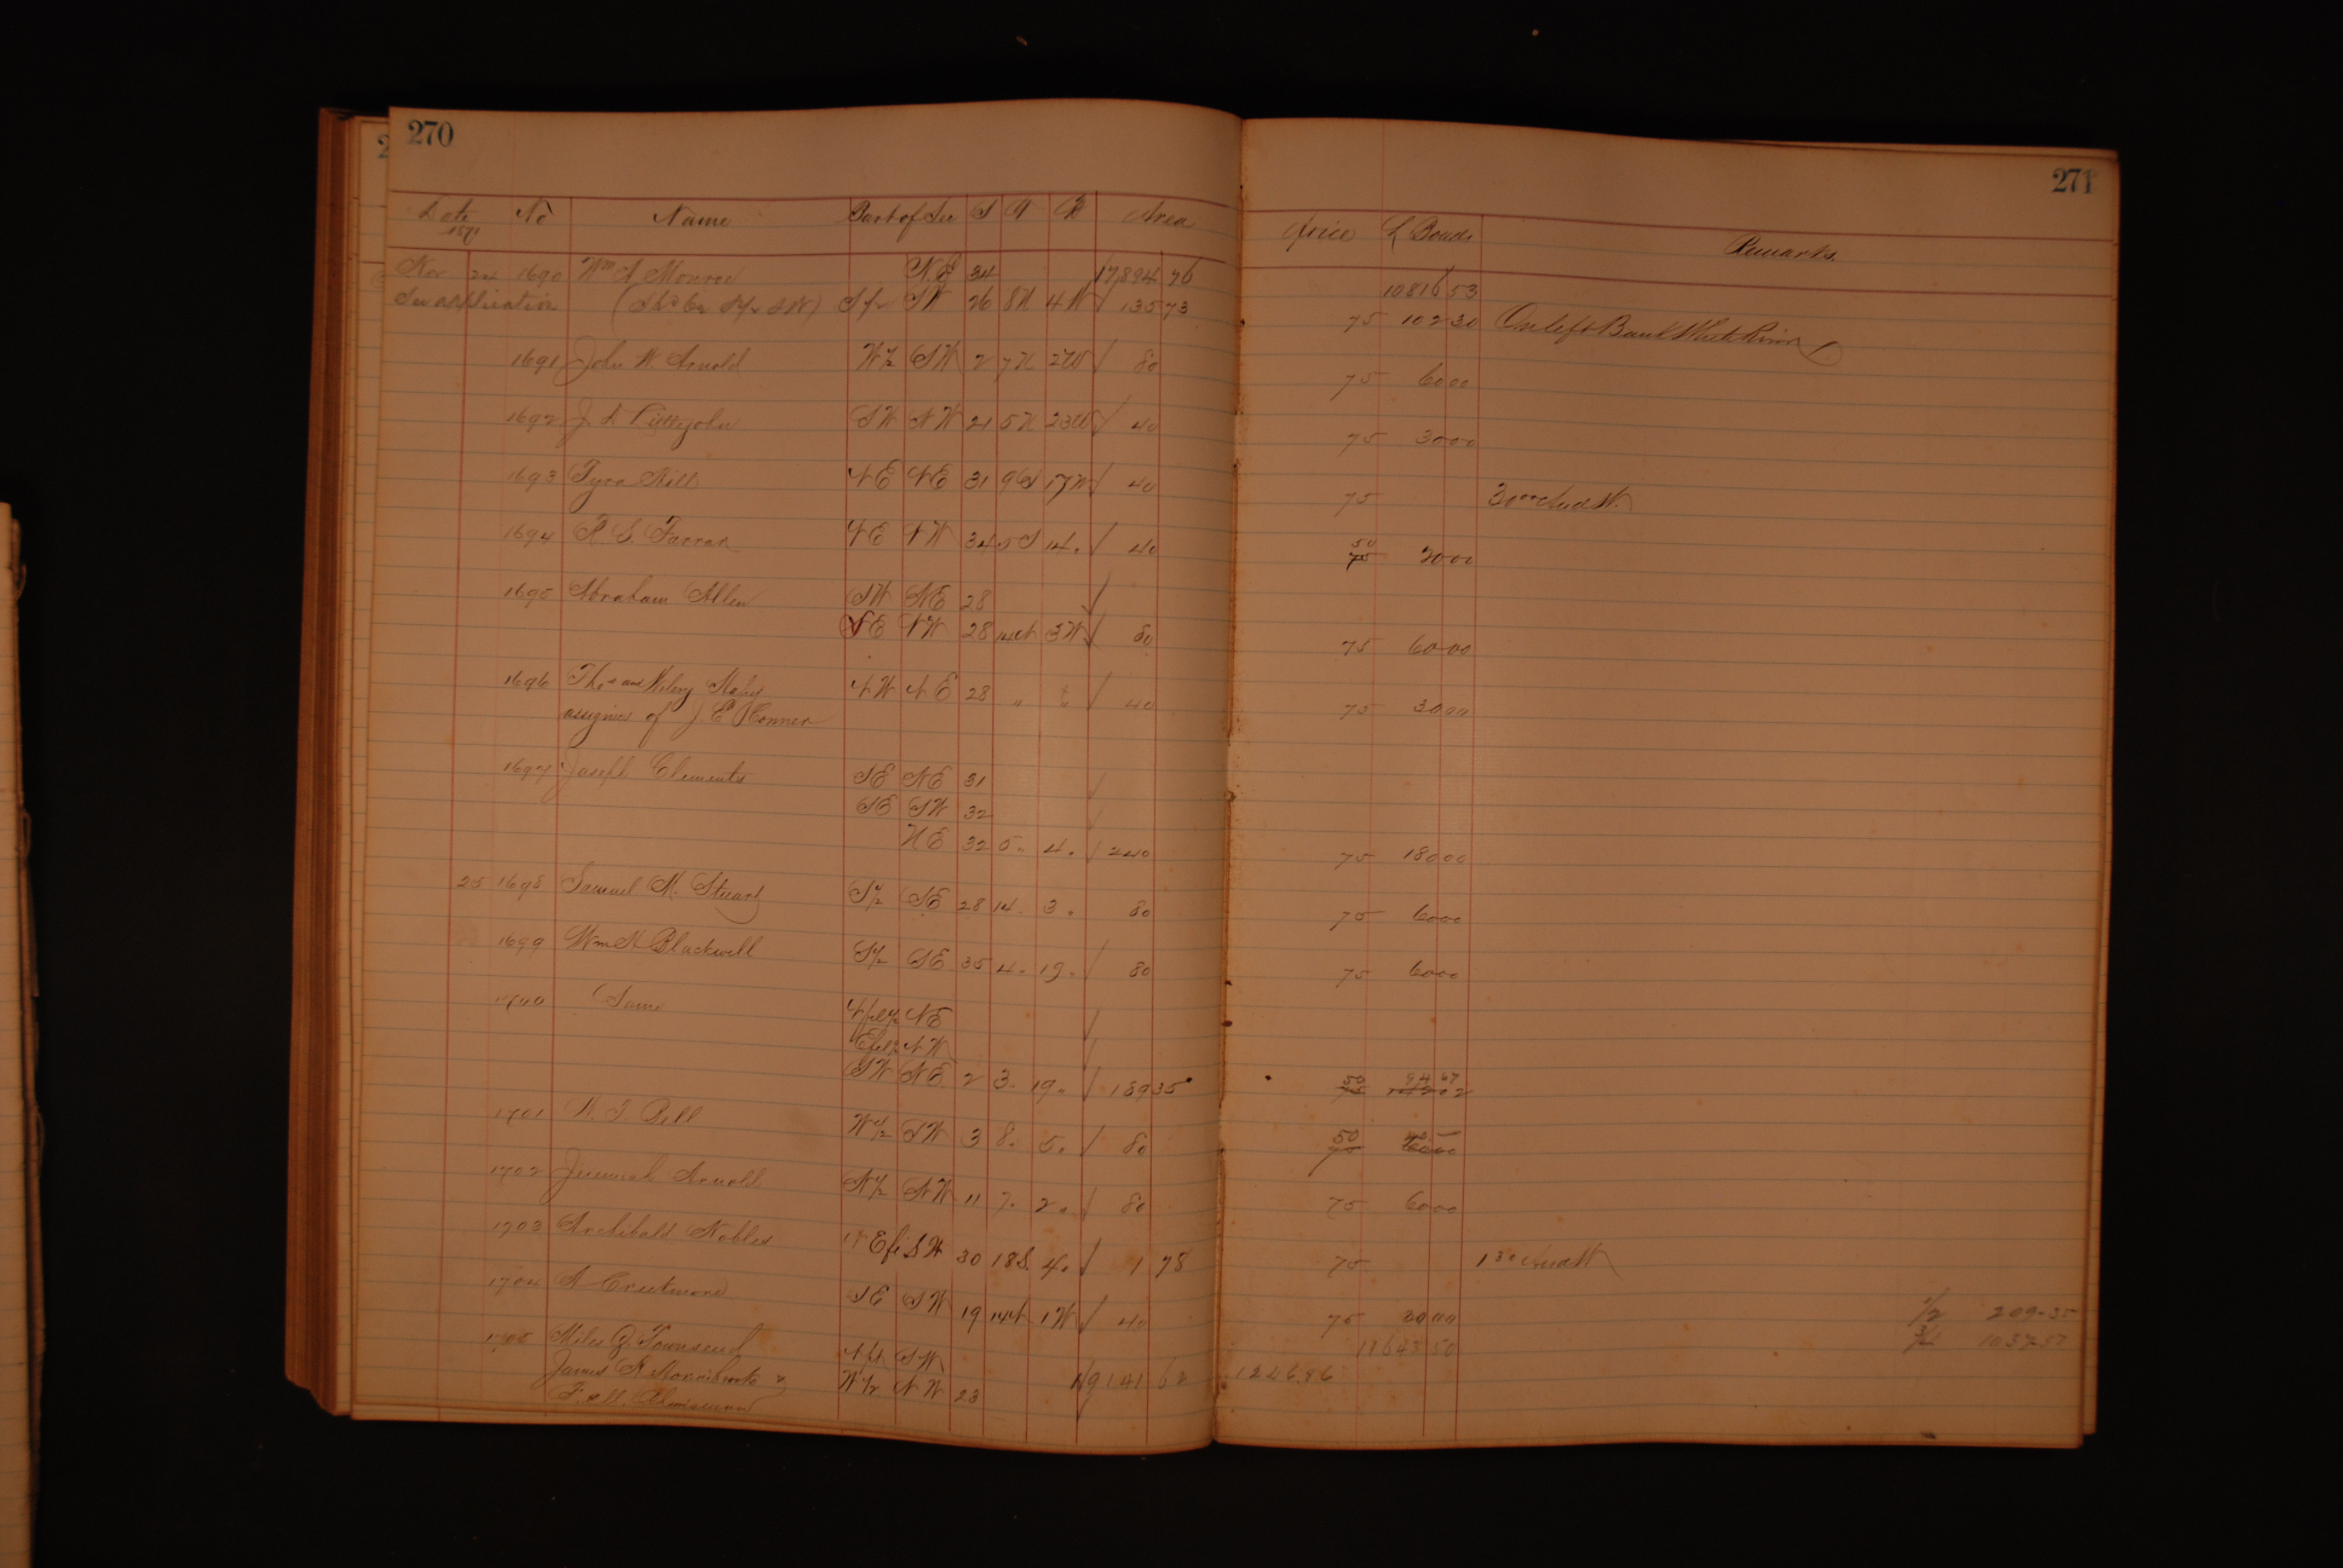 270
271
Date No Name Part of Sec S T R Area Price L Bonds Remarks.
187
Nov 24 1690 Wm A Monroe N.E 34 17894 76 10816 53
See application S fr SW 26 8N 4W 135 73 75 102 30 On left Bank White River
1691 John W. Arnold W½ SW 2 7N 2W 80 75 60 00
1692 J L Littlejohn SW NW 21 5N 23W 40 75 30 00
1693 Tyra Hill NE NE 31 9S 17W 40 75 30 00
1694 R. S. Farrar NE NW 34 5S 14. 40 50 75 20 00
1695 Abraham Allen SW NE 28
NE NW 28 14N 3W 80 75 60 00
1696 Thos and Wiley NW NE 28 " " 40 75 30 00
assignees of J E OConner
1697 Joseph Clements SE NE 31
SE SW 32
NE 32 5. 4. 240 75 180 00
25 1698 Samuel M. Stuart S½ SE 28 14. 3. 80 75 60 00
1699 Wm H Blackwell S½ SE 35 4. 19. 80 75 60 00
1700 Same N frl ½ NE
E frl ½ NW
SW NE 2 3. 19. 189 35 50 75 94 67 142 02
1701 Bell W½ SW 3 8. 5. 80 50 75 40. 60 00
1702 Jeremiah Arnold N½ NW 11 7. 2. 80 75 60 00
1703 Archibald Nobles SW 30 18S. 4. 1 78 75
1704 SE SW 19 14N 1W 40 75 30 00
1/2 209-35
11643 50
3/4 1037-51
1705 Miles Q. Townsend SW
James &
W½ NW 23 19141 62 1246.86